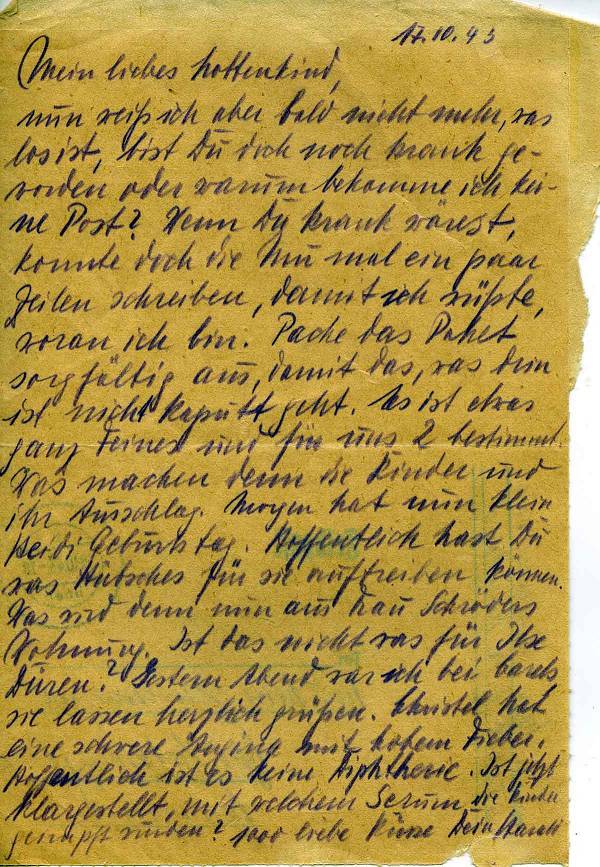 17.10.43
Mein liebes Lottenkind,
nun weiß ich aber bald nicht mehr, was
los ist, bist Du doch noch krank ge-
worden oder warum bekomme ich kei-
ne Post? Wenn Du krank wärest,
konnte doch die Mu mal ein paar
Zeilen schreiben, damit ich wüßte,
woran ich bin. Packe das Paket
sorgfältig aus, damit das, was drin
ist nicht kaputt geht. Es ist etwas
ganz Feines und für uns 2 bestimmt.
Was machen denn die Kinder und
ihr Ausschlag. Morgen hat nun klein
Heidi Geburtstag. Hoffentlich hast Du
was Hübsches für sie auftreiben können.
Was wird denn nun aus Frau Schröders
Wohnung. Ist das nicht was für Ilse
Düren? Gestern Abend war ich bei
sie lassen herzlich grüßen. Christel hat
eine schwere Angina mit hohem Fieber.
Hoffentlich ist es keine Diphtherie. Ist jetzt
klargestellt, mit welchem Serum die Kinder
geimpft wurden? 1000 liebe Küsse Dein